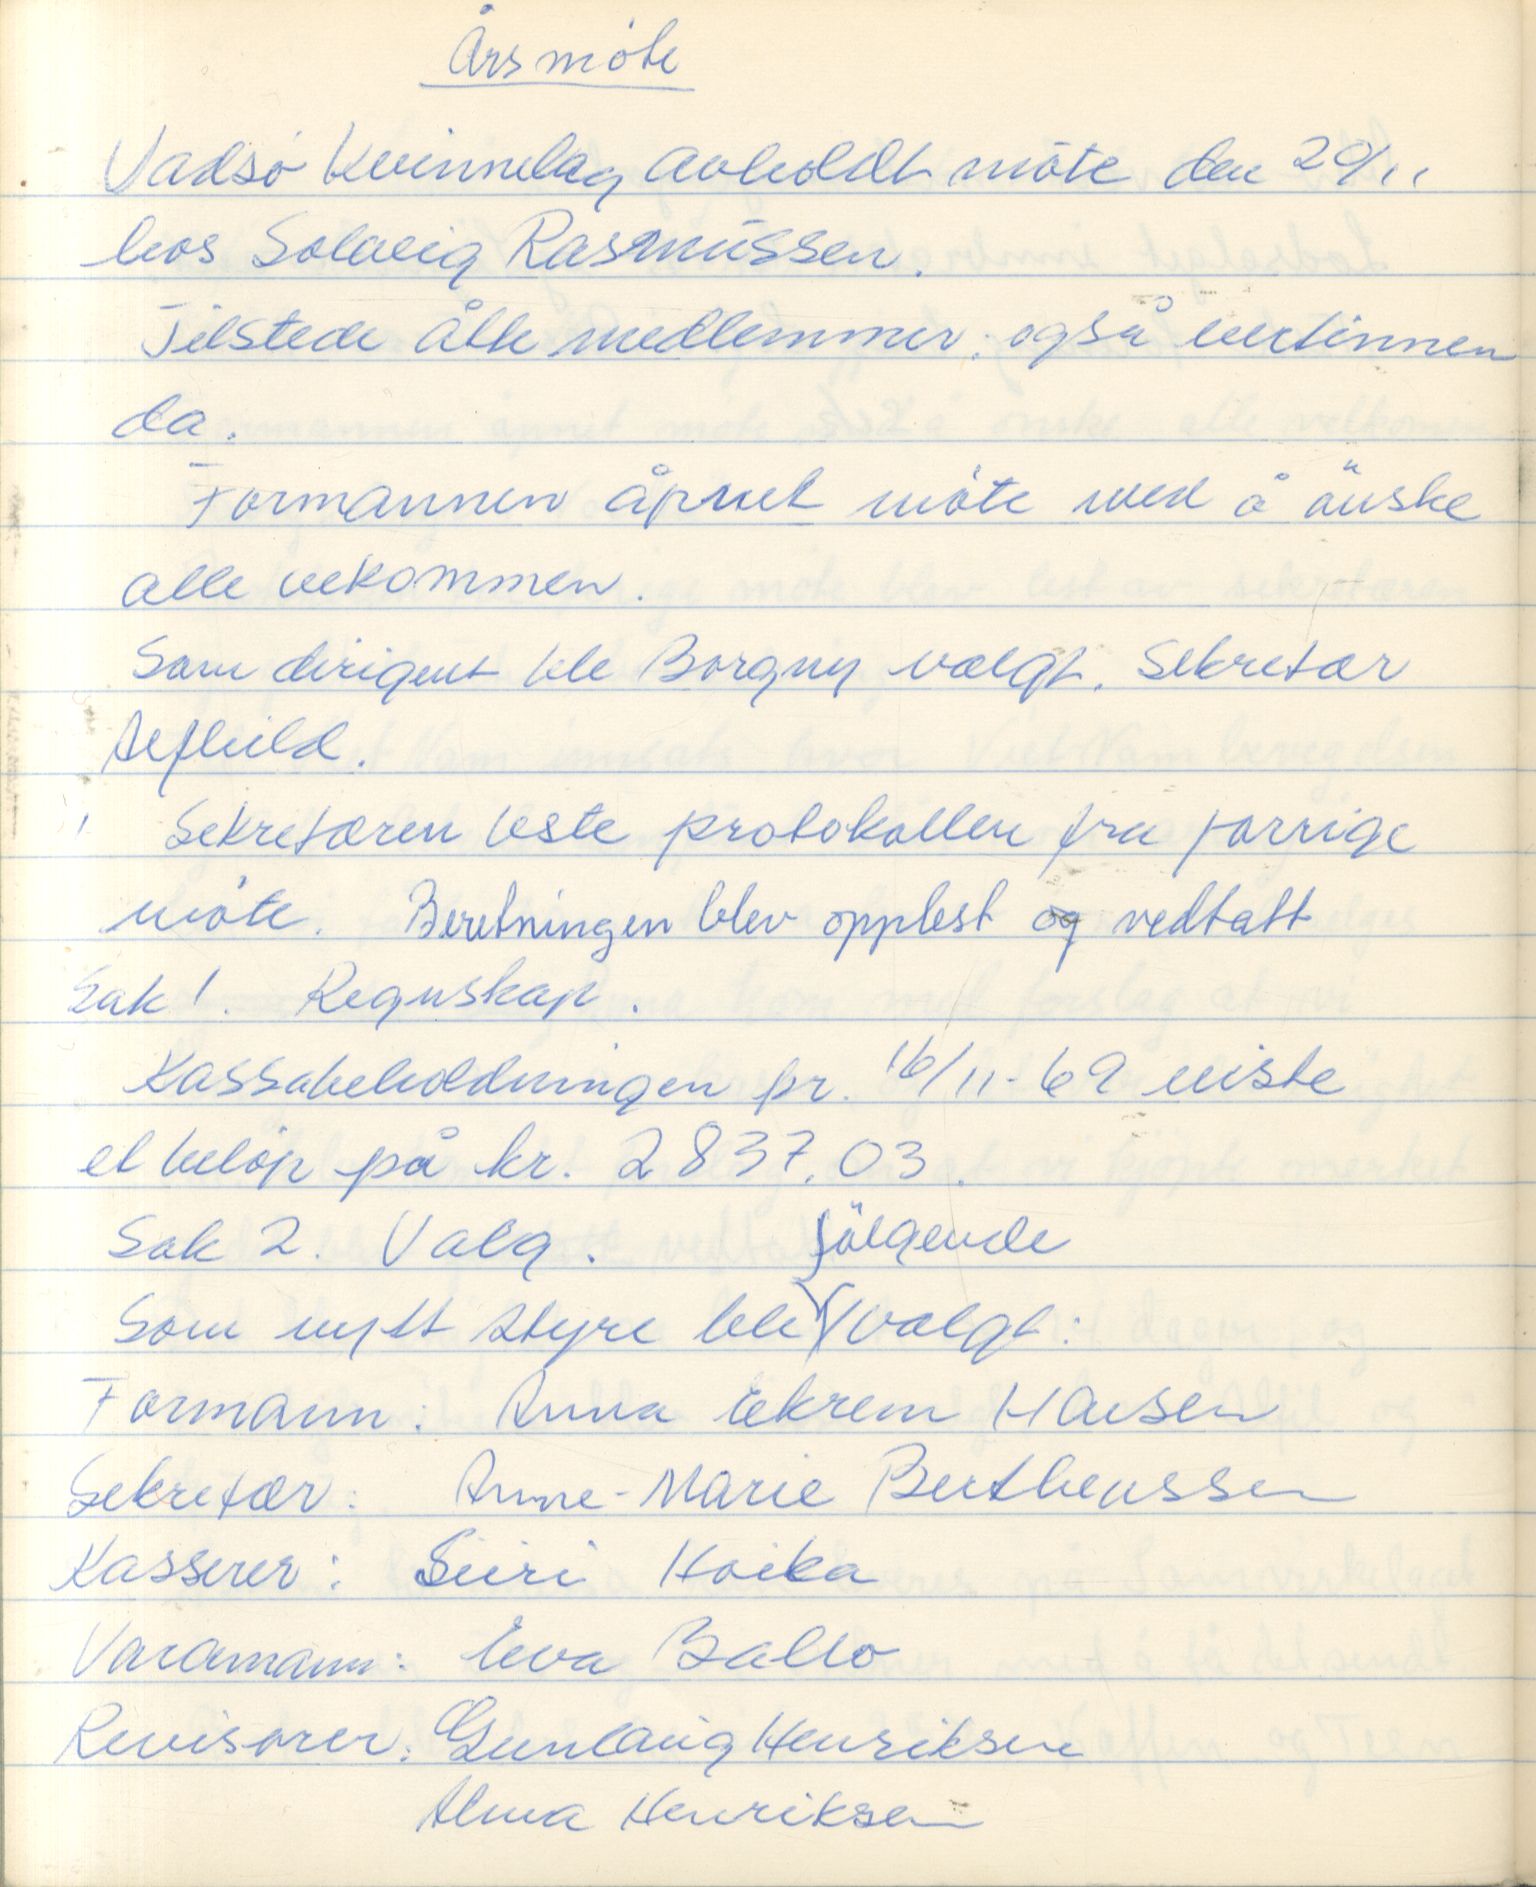 Årsmöte
Vadsö Kvinnelag avholdt möte den 20/11
hos Solveig Rasmussen.
Tilstede alle medlemmer, også vertinnen
da.
Formannen åpnet möte med å önske
alle vekommen.
Som dirigent ble Borgny valgt. Sekretær
Alfhild.
Sekretæren leste protokollen fra forrige
möte. Beretningen blev opplest og vedtatt
Sak 1. Regnskap.
Kassabeholdningen pr. 16/11-69 viste
et belöp på kr. 2837.03.
Sak 2. Valg.
Som nytt styre ble følgende valgt:
Formann: Anna Ekrem Hansen
Sekretær: Anne-Marie Berthenssen
Kasserer: Siiri Koika
Varamann: Eva Ballo
Revisorer: Gunlaug Henriksen
Alma Henriksen